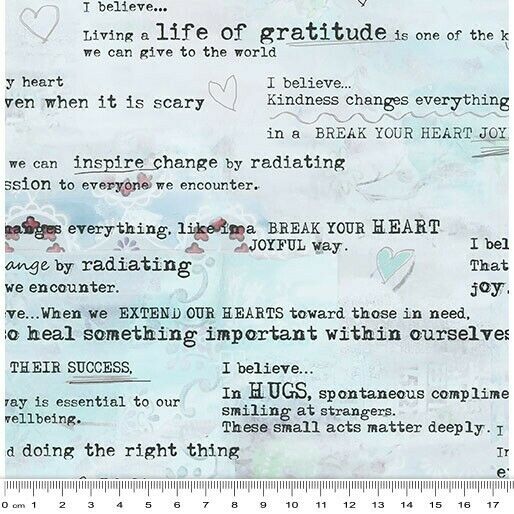 I believe...
Living a life of gratitude is one of the k
we can give to the world
y heart
ven when it is scary
I believe...
Kindness changes everything
in a BREAK YOUR HEART JOY
we can inspire change by radiating
ssion to everyone we encounter.
hanges everything, like in a BREAK YOUR HEART
JOYFUL way.
I bel
That
joy.
ange by radiating
we encounter.
ve...When we EXTEND OUR HEARTS toward those in need,
o heal something important within ourselves
THEIR SUCCESS,
way is essential to our
wellbeing.
I believe...
In HUGS, spontaneous complime
smiling at strangers.
These small acts matter deeply.
I
d doing the right thing
In
e
0 cm 1 2 3 4 5 6 7 8 9 10 11 12 13 14 15 16 17